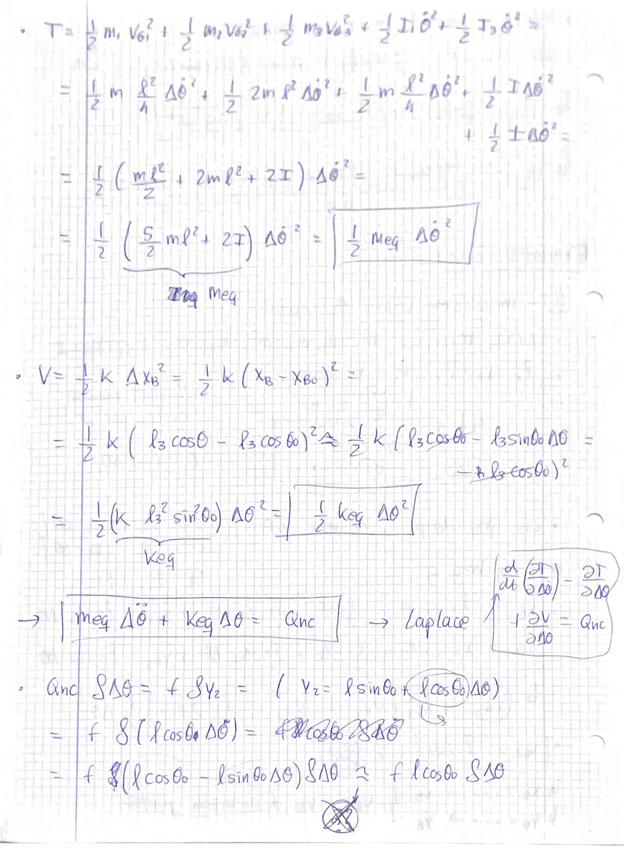 • T = 1/2 m₁ v_G₁² + 1/2 m₂ v_G₂² + 1/2 m₃ v_G₃² + 1/2 I₁ θ̇² + 1/2 I₃ θ̇² =
= 1/2 m ℓ²/4 Δθ̇² + 1/2 2m ℓ² Δθ̇² + 1/2 m ℓ²/4 Δθ̇² + 1/2 I Δθ̇²
+ 1/2 I Δθ̇² =
= 1/2 ( mℓ²/2 + 2mℓ² + 2I ) Δθ̇² =
= 1/2 ( 5/2 mℓ² + 2I ) Δθ̇² = 1/2 meq Δθ̇²
meq
• V = 1/2 k ΔxB² = 1/2 k ( xB - xB0 )² =
= 1/2 k ( ℓ₃ cosθ - ℓ₃ cosθ₀ )² ≈ 1/2 k ( ℓ₃ cosθ₀ - ℓ₃ sinθ₀ Δθ =
- ℓ₃ cosθ₀ )²
= 1/2 ( k ℓ₃² sin²θ₀ ) Δθ² = 1/2 keq Δθ²
keq
→ meq Δθ̈ + keq Δθ = Qnc → Laplace
d/dt (∂T/∂Δθ̇) - ∂T/∂Δθ
+ ∂V/∂Δθ = Qnc
• Qnc δΔθ = f δy₂ = ( y₂ = ℓ sinθ₀ + ℓ cosθ₀ Δθ )
= f δ ( ℓ cosθ₀ Δθ ) =
= f ( ℓ cosθ₀ - ℓ sinθ₀ Δθ ) δΔθ ≈ f ℓ cosθ₀ δΔθ